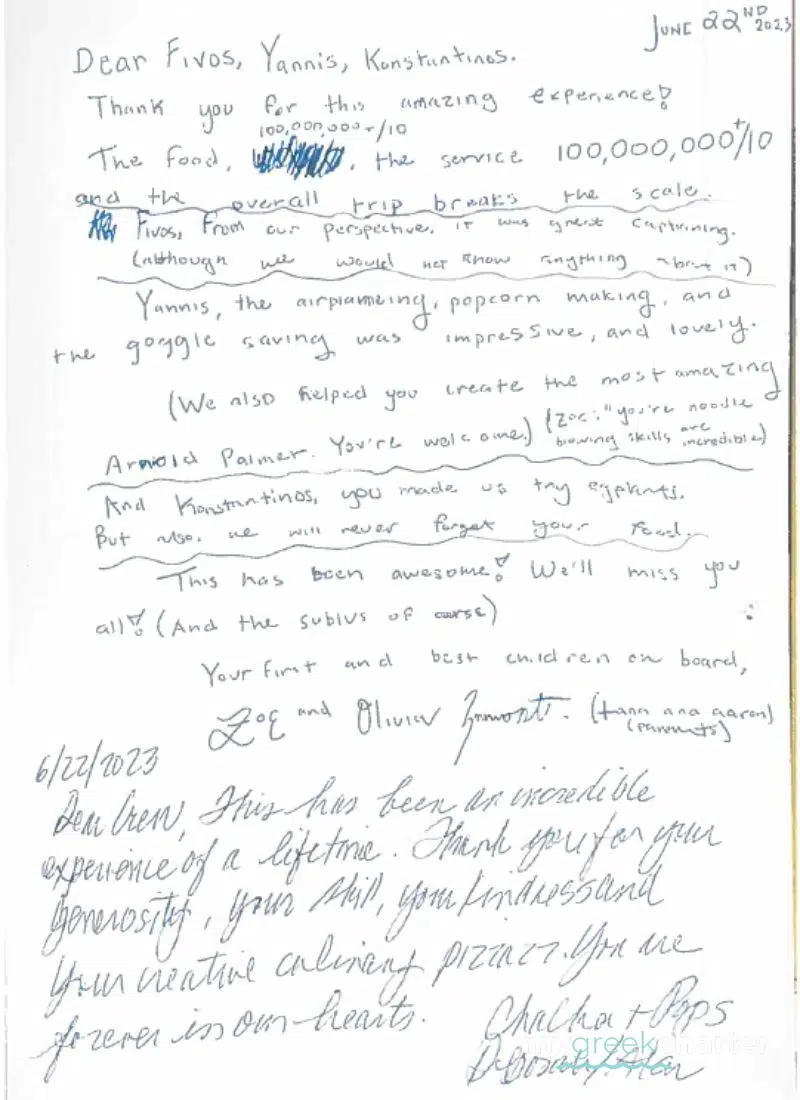 JUNE 22ND 2023
Dear Fivos, Yannis, Konstantinos.
Thank you for this amazing experience!
100,000,000+/10
The food, , the service 100,000,000+/10
and the overall trip breaks the scale.
Fivos, From our perspective, it was great captaining.
(although we would not know anything about it)
Yannis, the airplaneing, popcorn making, and
the goggle saving was impressive, and lovely.
(We also helped you create the most amazing
Arnold Palmer. You're welcome.) (Zoe: "you're noodle
blowing skills are incredible)
And Konstantinos, you made us try egplants.
But also, we will never forget your food.
This has been awesome! We'll miss you
all! (And the subius of course)
Your first and best children on board,
Zoe and Olivier (tann and aaron)
(parents)
6/22/2023
Dear Crew, This has been an incredible
experience of a lifetime. Thank you for your
generosity, your skill, your kindness and
your creative culinary pizzazz. You are
forever in our hearts.
ChaCha + Pops
greek charter
Deborah / Alan